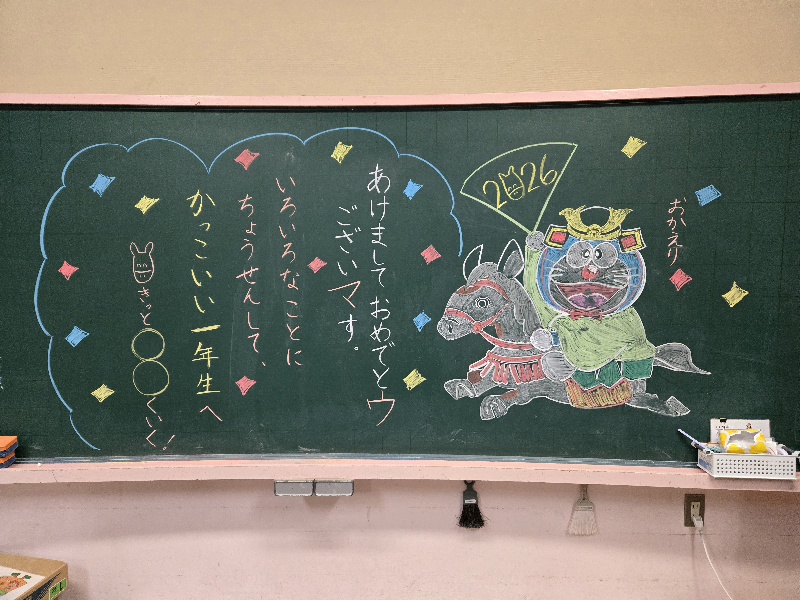 あけまして おめでとウ
ございマす。
いろいろなことに
ちょうせんして、
かっこいい一年生へ
きっと〇〇くいく!
2026
おかえり